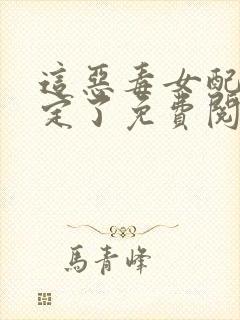 這惡毒女配
定了免費閱
馬青峰